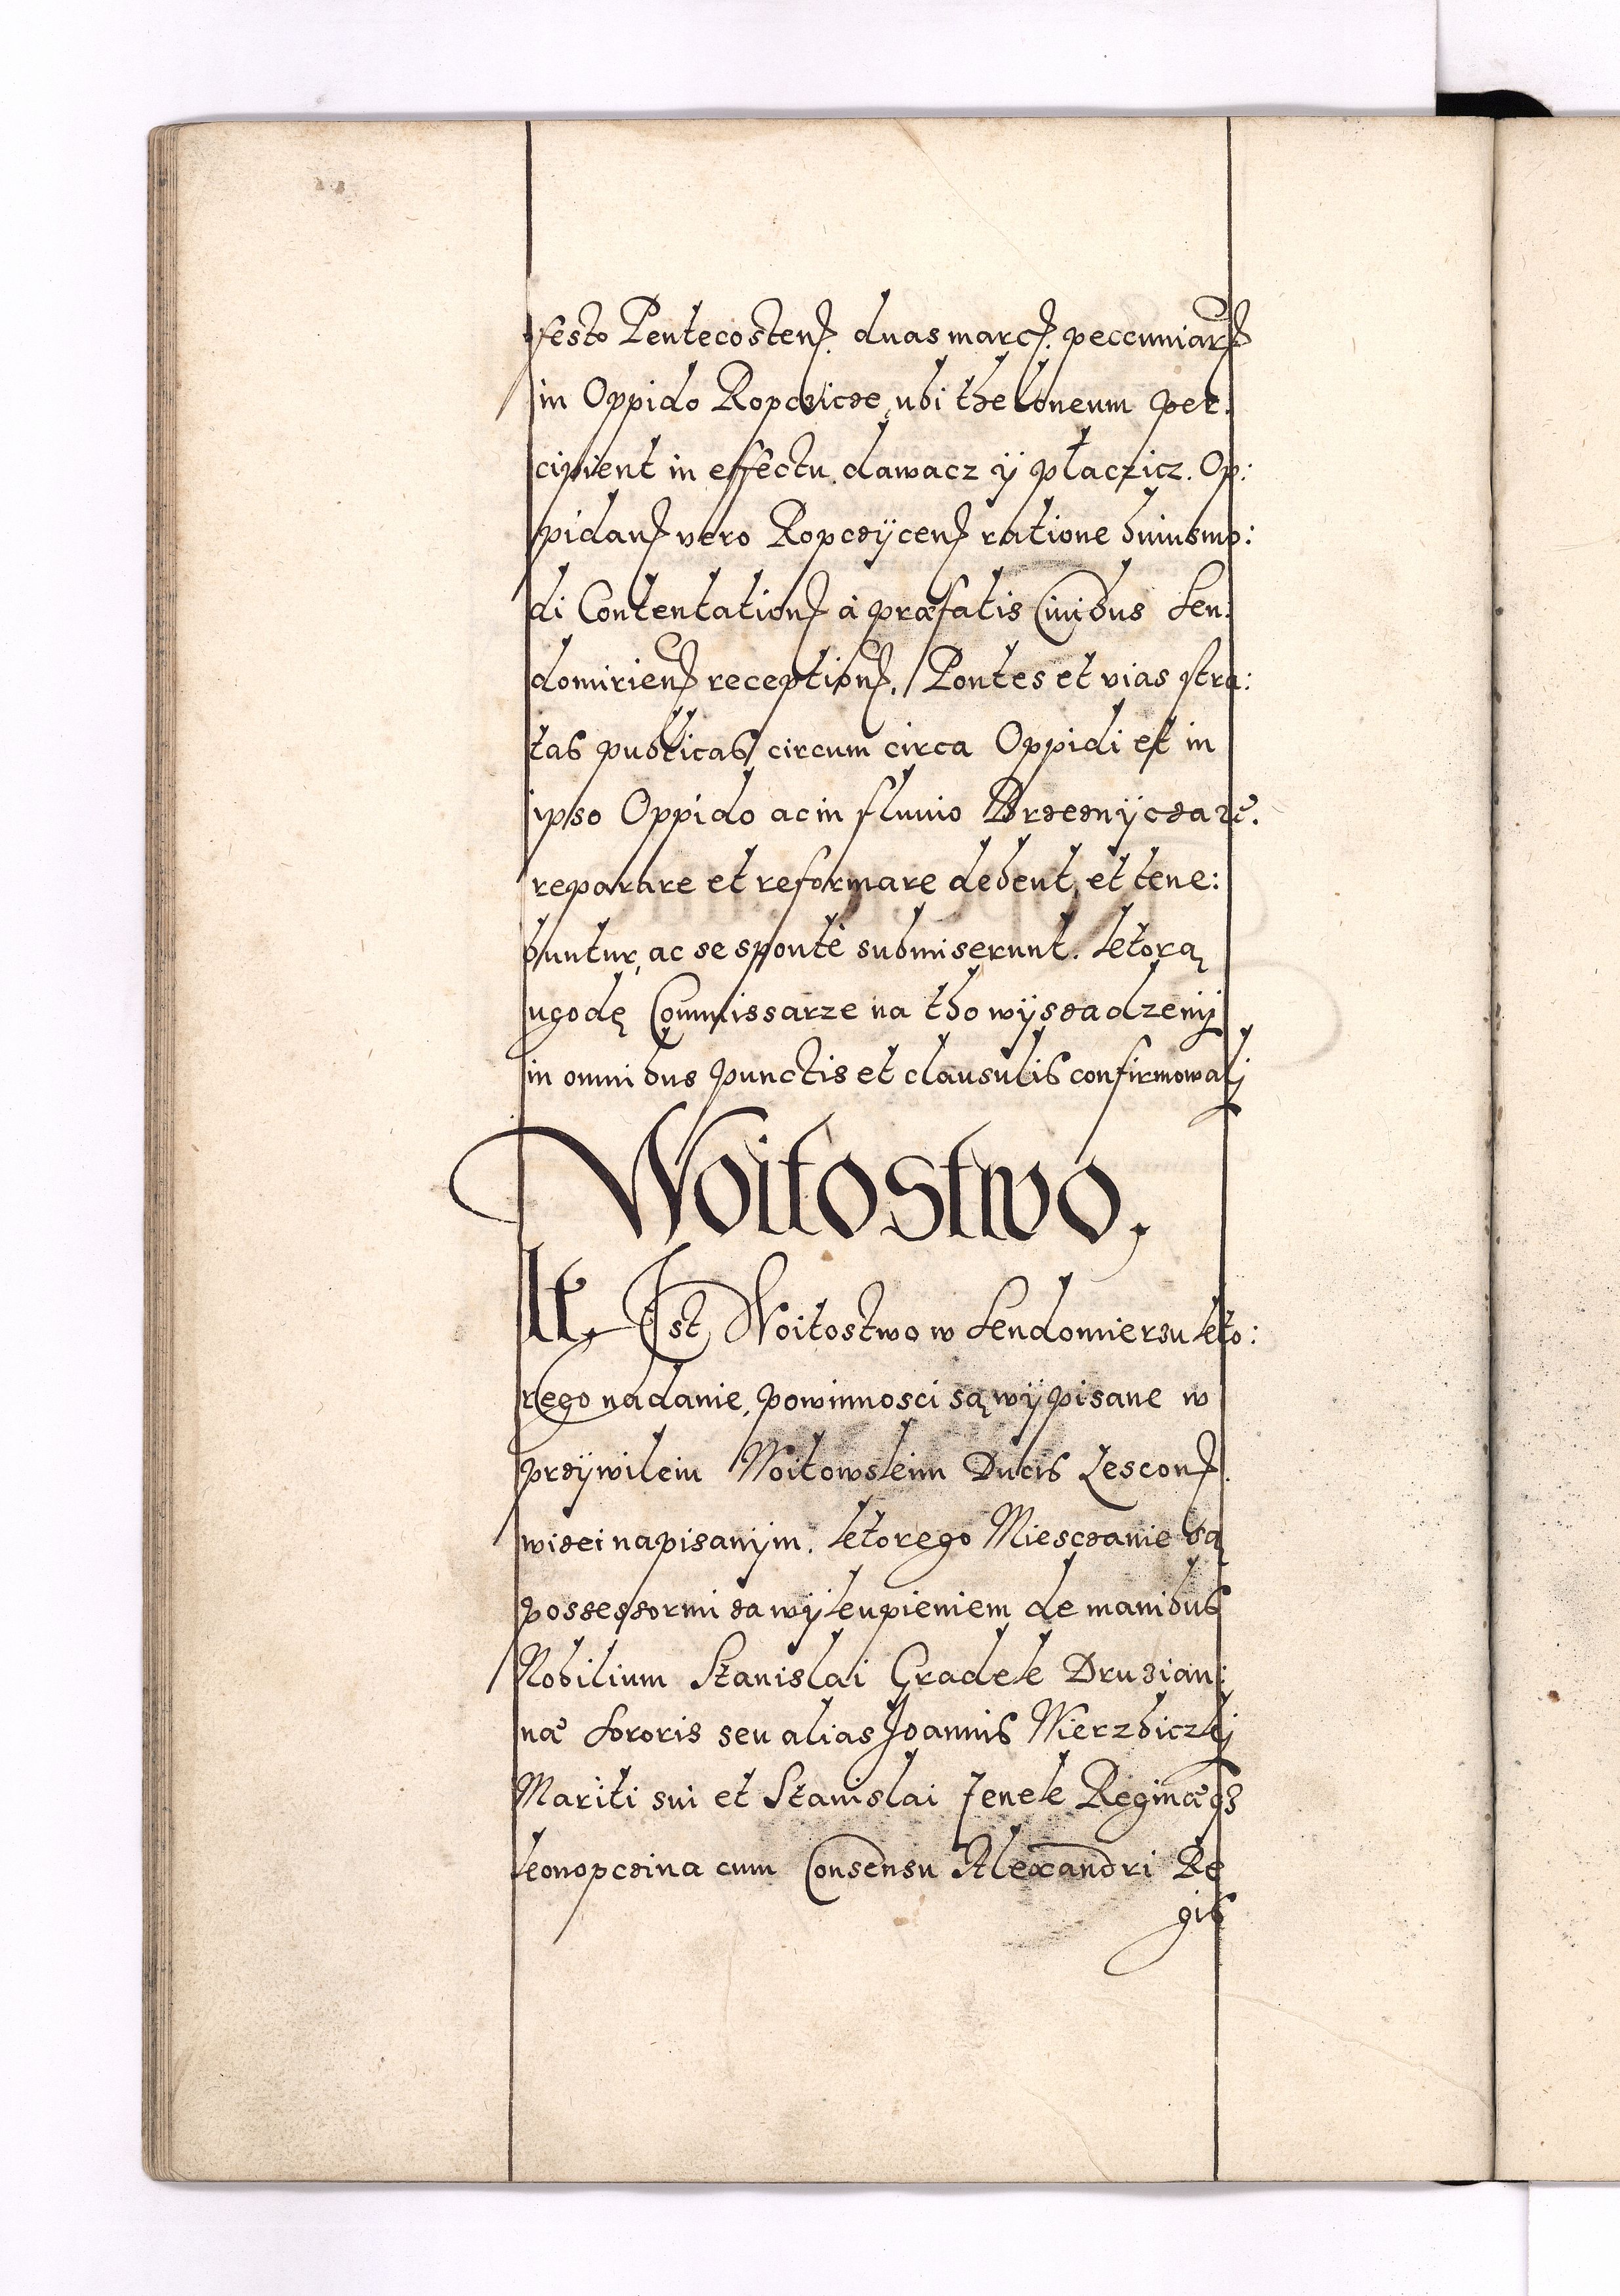 festo Pentecosten. duas marc. peccuniar.
in Oppido Ropczicze, ubi theloneum per:
cipient in effectu. dawacz ÿ płaczicz. Op:
pidan. vero Ropczÿcen. ratione huiusmo:
di Contentation. à præfatis Civibus Sen:
domirien. reception. Pontes et vias stra:
tas publicas circum circa Oppidi et in
ipso Oppido ac in fluvio
reparare et reformare debent, et tene:
buntur, ac se spontè submiserunt. ktorą
ugodę Commissarze na tho wÿsadzenÿ
in omnibus punctis et clausulis confirmowalj
Woitostwo,
It. Jest Woitostwo w Sendomierzu kto:
rego nadanie, powinnosci są wÿpisane w
przÿwileiu Woitowskim Ducis Lescon.
wizei napisanÿm. ktorego Miesczanie są
possessormi za wÿkupieniem de manibus
Nobilium Stanislai Gradek Druzian:
næ Sororis seu alias Joannis Wierzbiczkj
Mariti sui et Stanislai Jenek Reginæ
konopczina cum Consensu Alexandri Re
gis